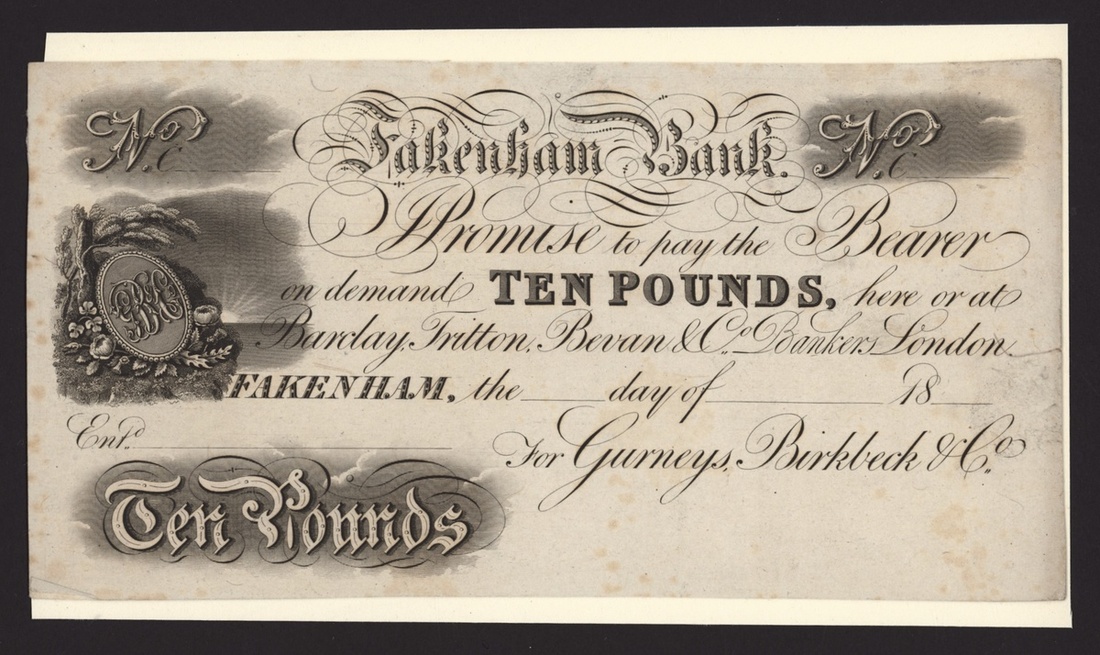 No. Fakenham Bank. No.
I Promise to pay the Bearer
on demand TEN POUNDS, here or at
Barclay, Tritton, Bevan & Co. Bankers London.
FAKENHAM, the day of 18
Entd.
For Gurneys, Birkbeck & Co.
Ten Pounds